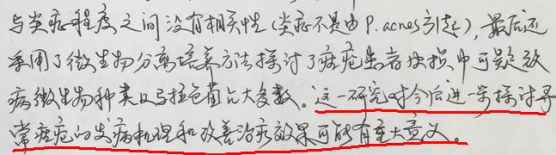 与炎症程度之间没有相关性(炎症不是由P.acnes引起),最后还
采用了微生物分离培养方法探讨了痤疮患者皮损中可疑致
病微生物种类以马拉色菌占大多数。这一研究对今后进一步探讨寻
常痤疮的发病机理和改善治疗效果可能有重大意义。